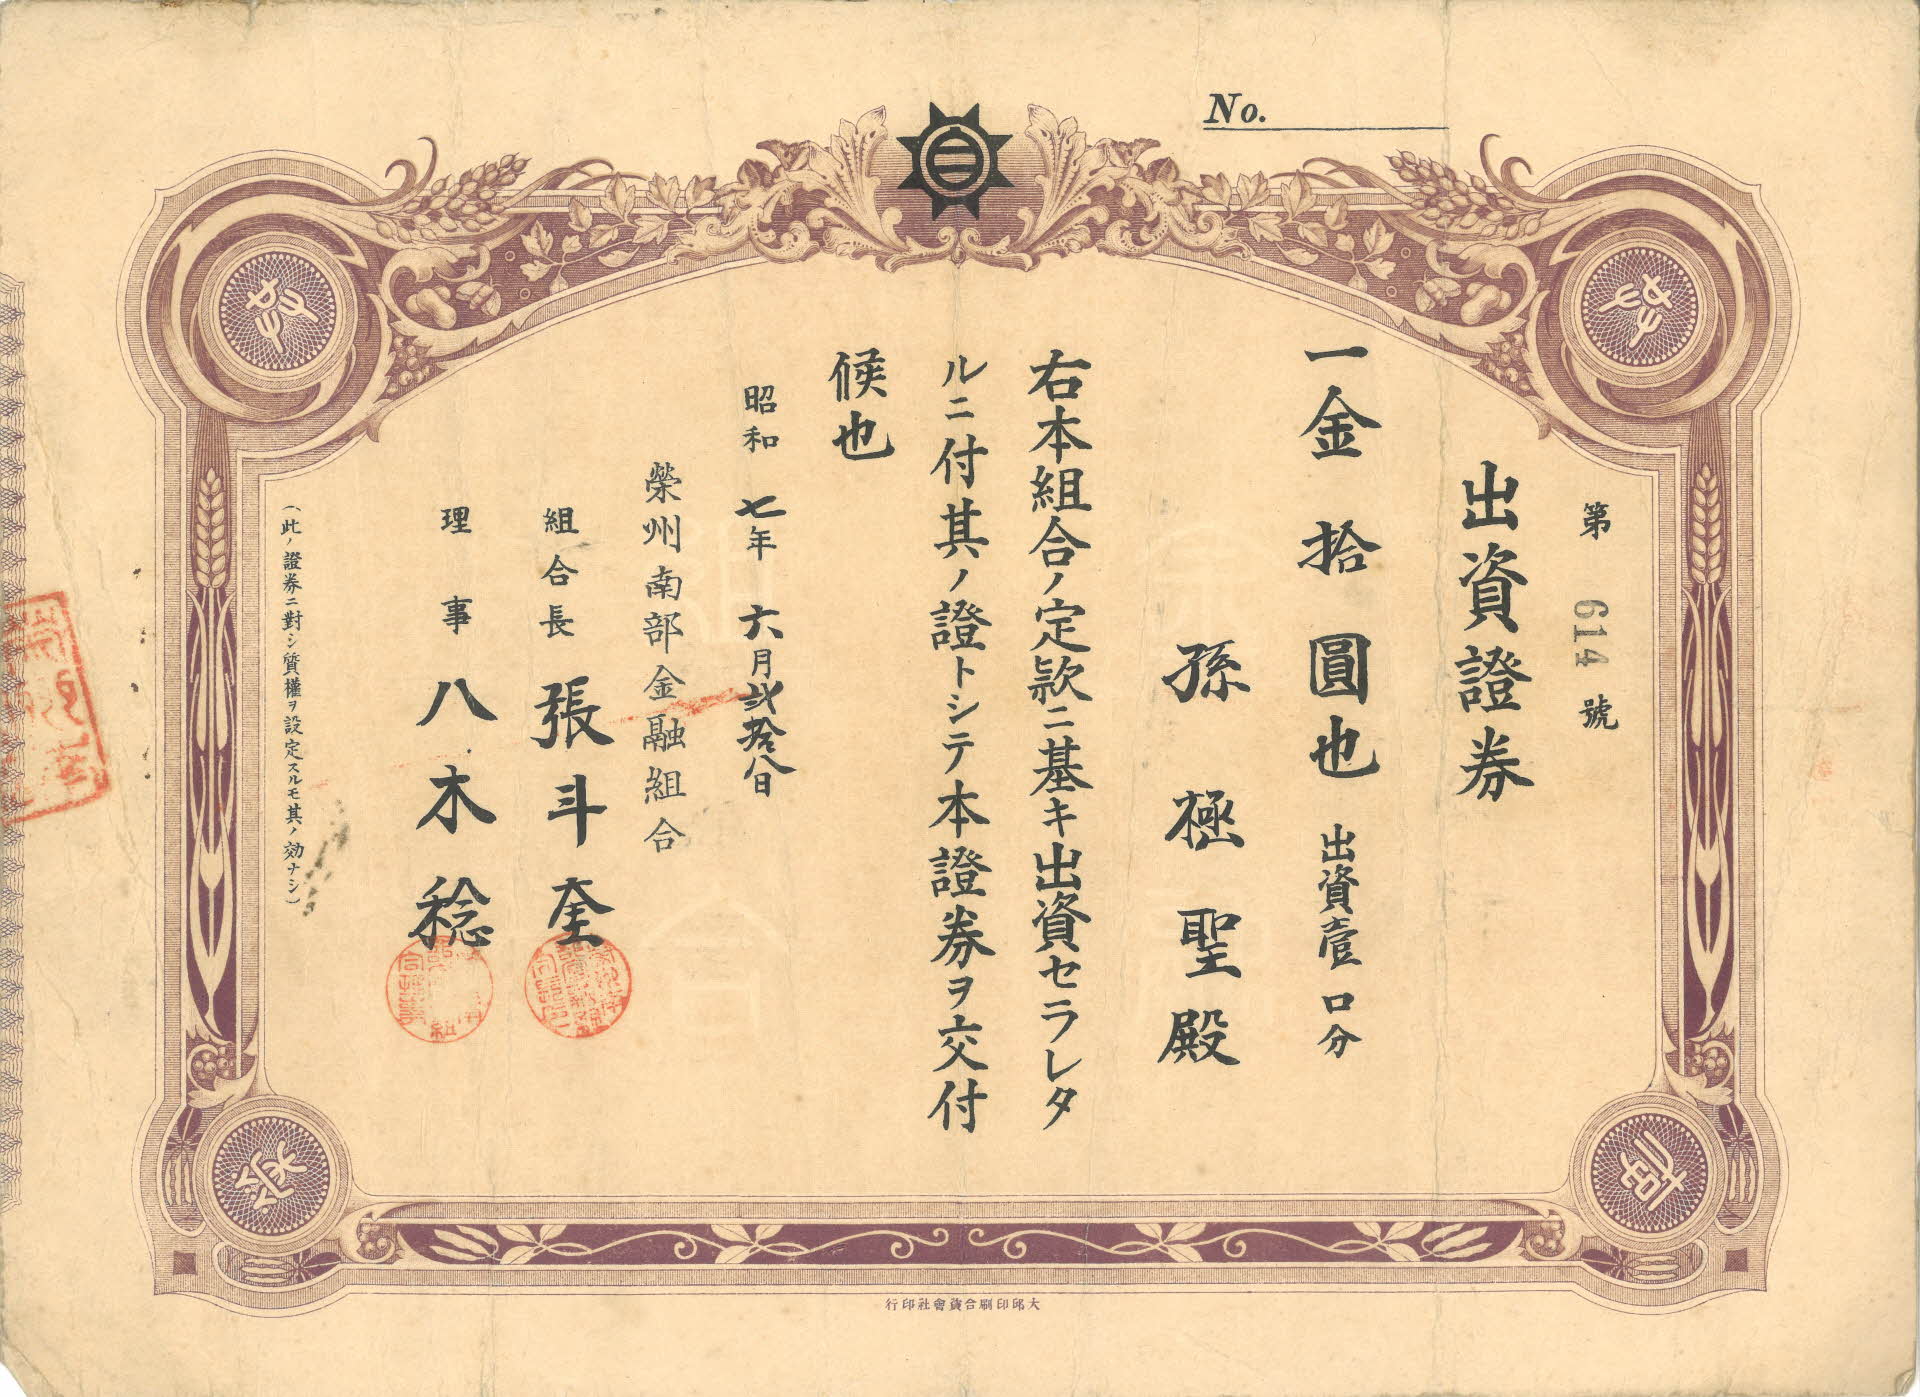 No.
第 614 號
出資證券
一金拾圓也 出資壹口分
孫極聖殿
右本組合ノ定款ニ基キ出資セラレタ
ルニ付其ノ證トシテ本證券ヲ交付
候也
昭和七年六月弐拾八日
榮州南部金融組合
組合長 張斗奎
理事 八木稔
(此ノ證券ニ對シ質權ヲ設定スルモ其ノ効ナシ)
大邱印刷合資會社印行